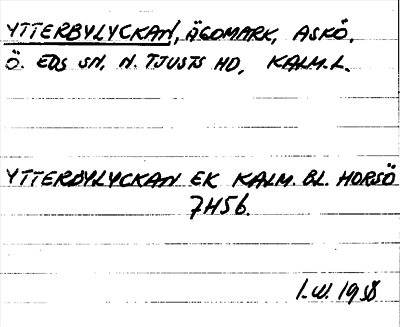 YTTERBYLYCKAN, ÄGOMARK, ASKÖ,
Ö. EDS SN, N. TJUSTS HD, KALM. L.
YTTERBYLYCKAN EK KALM. BL. HORSÖ
7H5b.
I.W. 1958